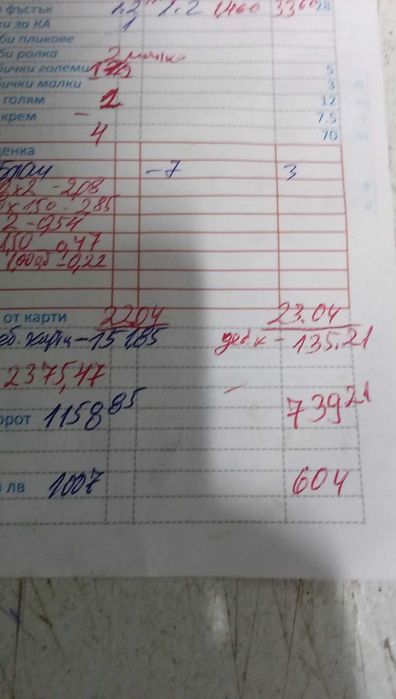 фъстък 1.2 1.2 1,460 3360 28
ки за КА 1
би пликове
би ролка 2 малко
бички големи 5
бички малки 3
голям 2 12
крем - 7,5
4 70
ценка
-7 3
2x2 - 2,08
x150 - 2,85
2 - 0,54
150 0,47
100гб - 0,22
от карти 22.04 23.04
деб. карти - 151,85 деб к - 135,21
2375,47 -
орот 1158 85 739 21
лв 1007 604